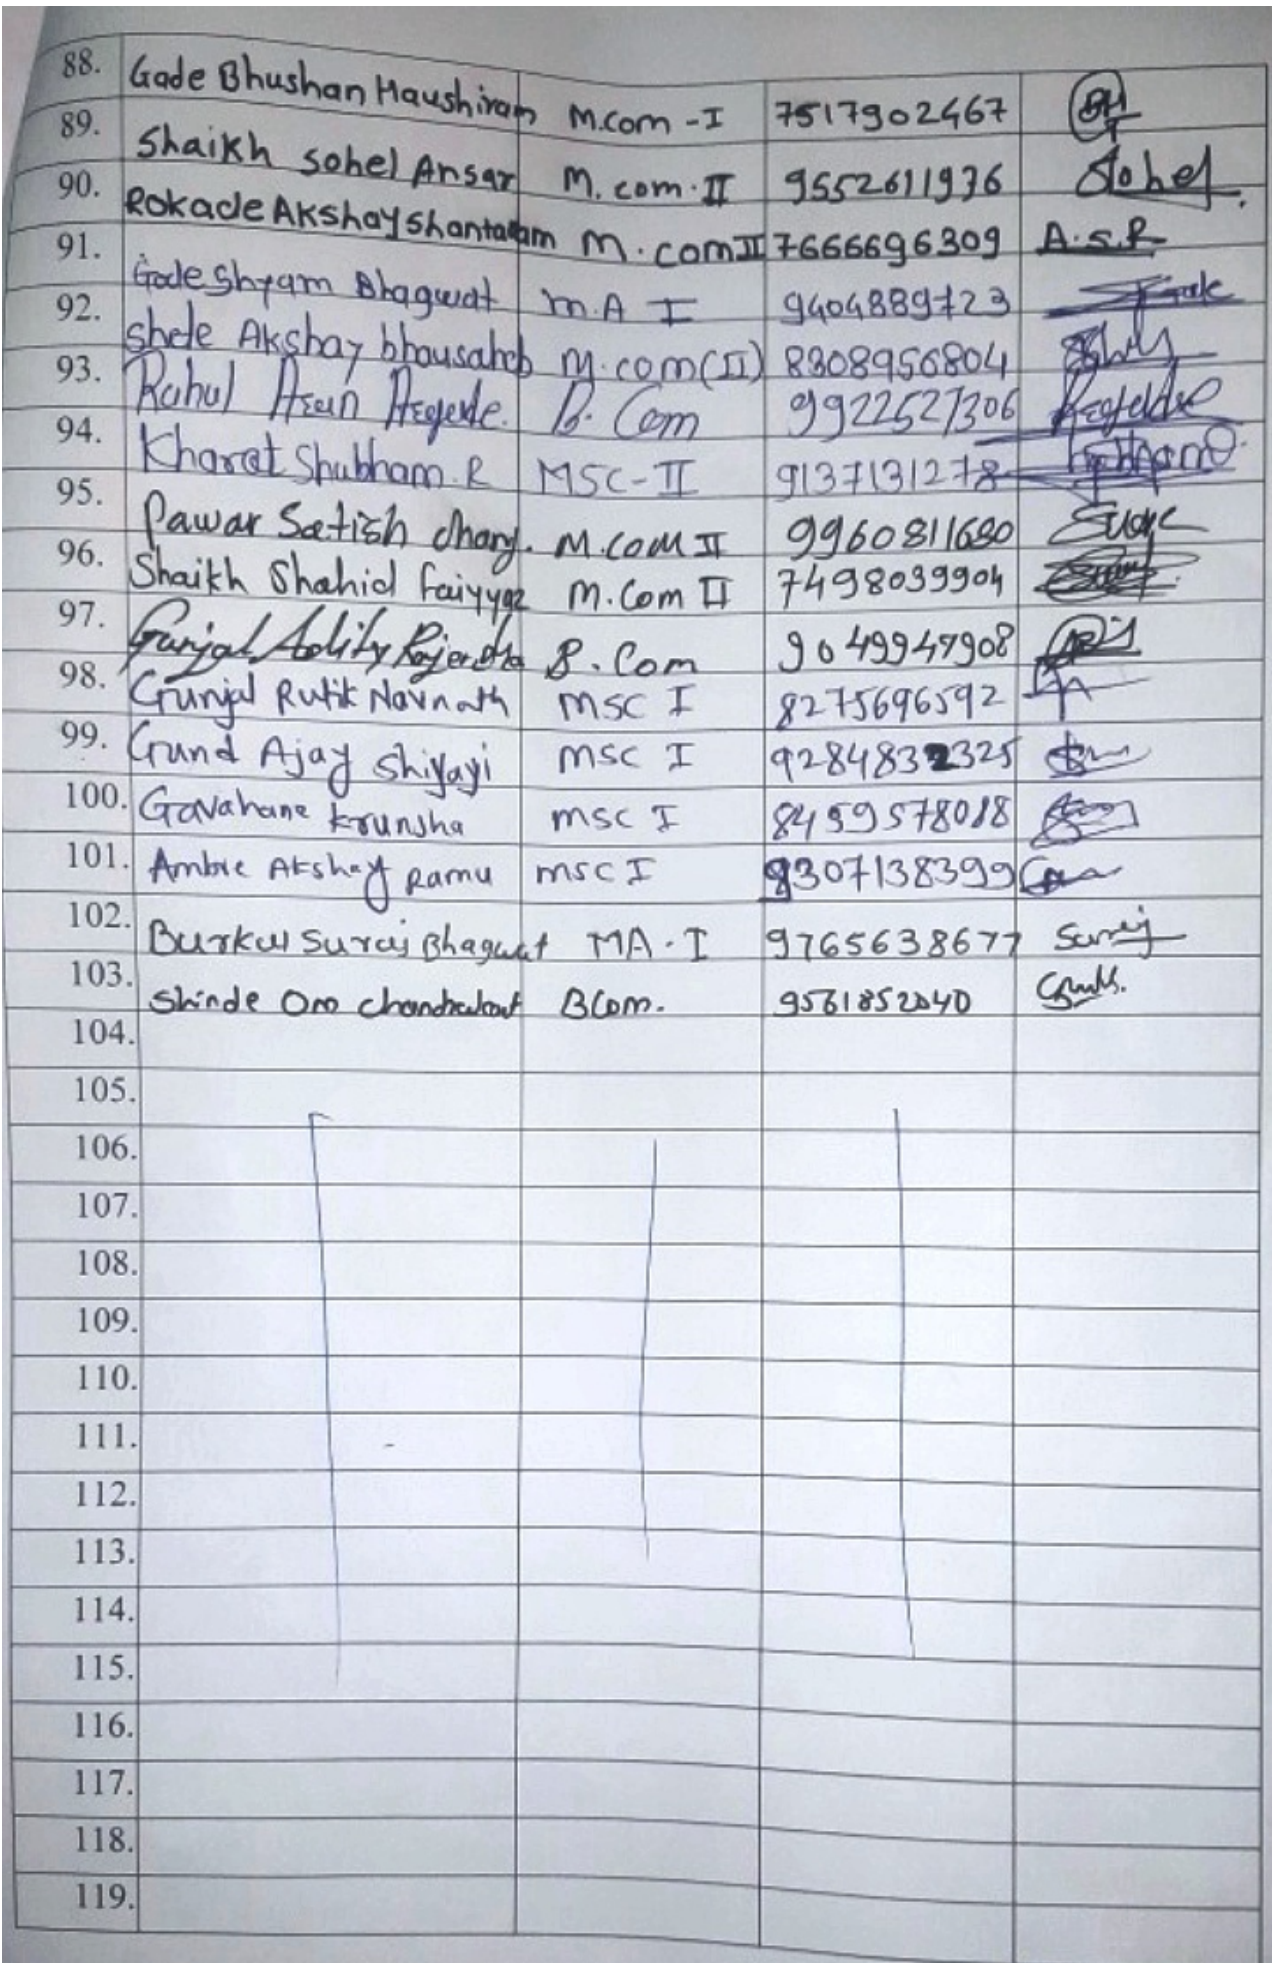 88. Gade Bhushan Haushiram M.com - I 7517902467
89. Shaikh Sohel Ansar M. com. II 9552611936 Sohel
90. Rokade Akshay Shantaram M. com II 7666696309 A.S.R
91. Gode Shyam Bhagwat M.A I 9404889723
92. Shele Akshay bhausaheb M.com (II) 8308956804
93. Rahul B. Com 9922527306
94. Kharat Shubham. R MSC-II 9137131278
95. Pawar Satish M.COM II 9960811680
96. Shaikh Shahid Faiyyaz M.Com II 7498039904
97. Gunjal Rajendra B. Com 9049947908
98. Gunjal Rutik Navnath MSC I 8275696592
99. Gund Ajay Shivaji MSC I 9284832325
100. Gavahane Krunsha MSC I 8459578018
101. Ambre Akshay Ramu MSC I 9307138399
102. Suraj Bhagwat MA. I 9765638677 Suraj
103. Shinde Om Chandrakant BCom. 9561852040
104.
105.
106.
107.
108.
109.
110.
111.
112.
113.
114.
115.
116.
117.
118.
119.